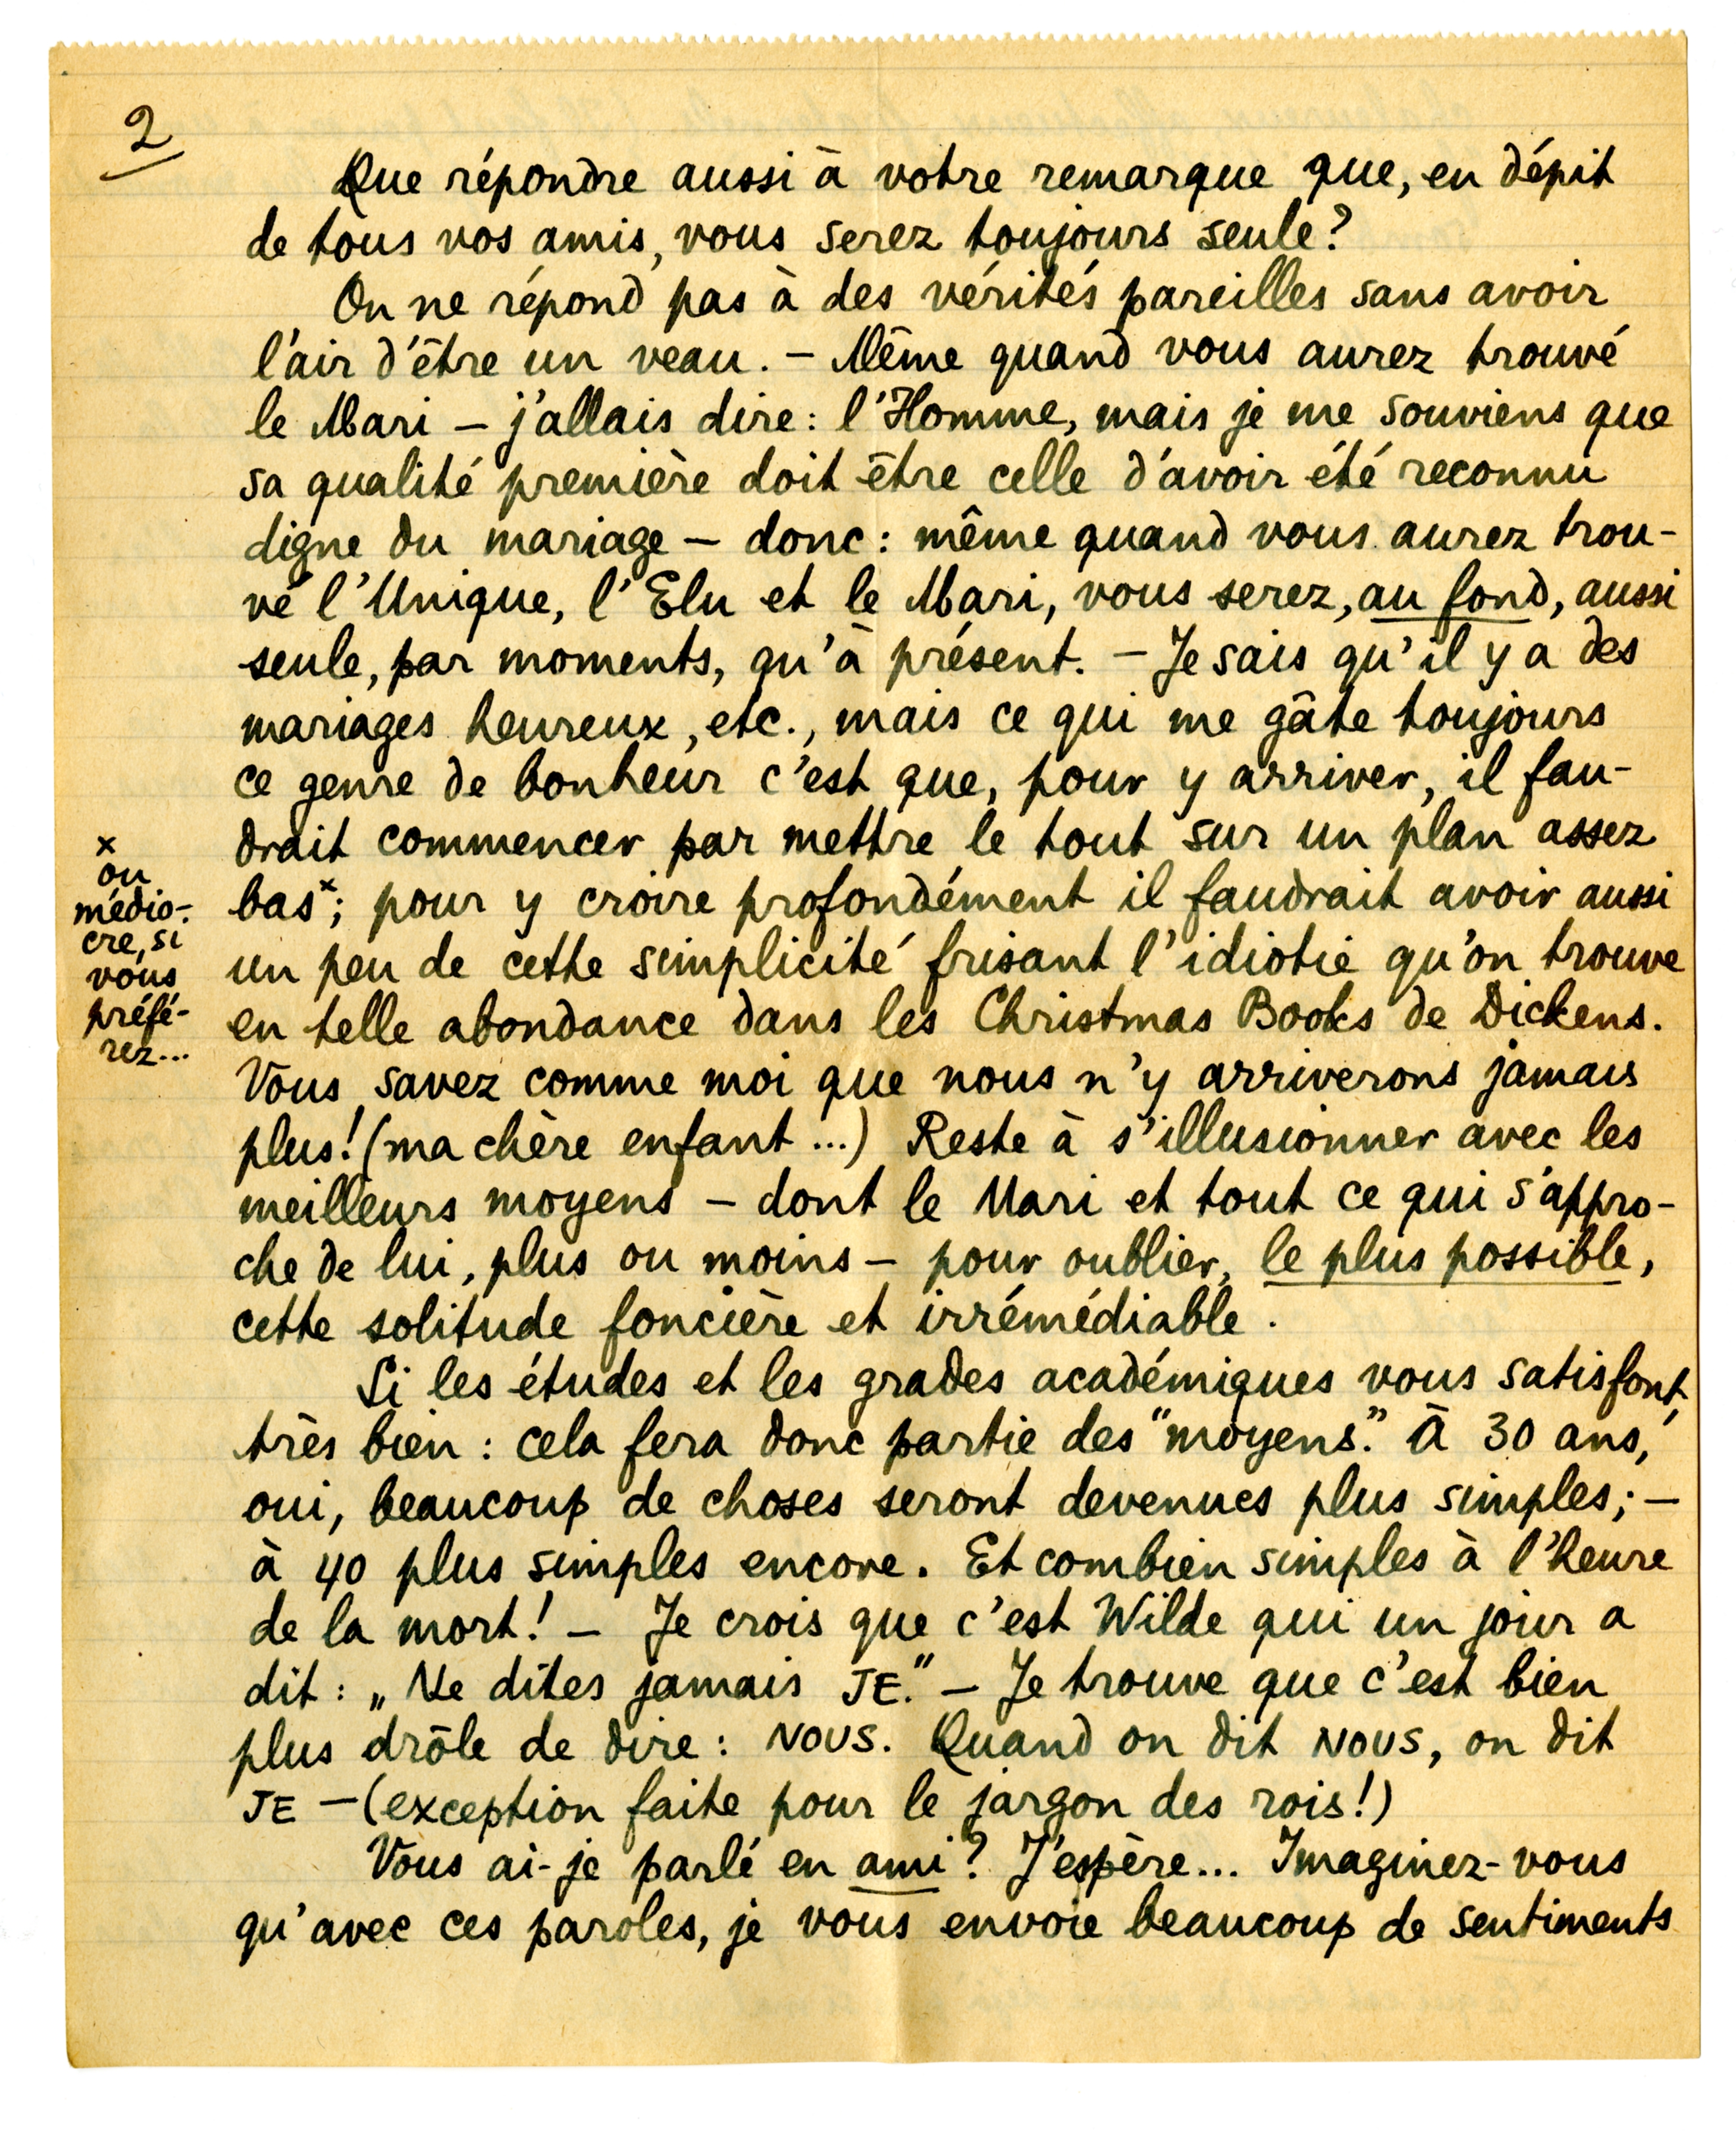 2
Que répondre aussi à votre remarque que, en dépit
de tous vos amis, vous serez toujours seule?
On ne répond pas à des vérités pareilles sans avoir
l'air d'être un veau. — Même quand vous aurez trouvé
le Mari — j'allais dire: l'Homme, mais je me souviens que
sa qualité première doit être celle d'avoir été reconnu
digne du mariage — donc: même quand vous aurez trou-
vé l'Unique, l'Elu et le Mari, vous serez, au fond, aussi
seule, par moments, qu'à présent. — Je sais qu'il y a des
mariages heureux, etc., mais ce qui me gâte toujours
ce genre de bonheur c'est que, pour y arriver, il fau-
drait commencer par mettre le tout sur un plan assez
bas×; pour y croire profondément il faudrait avoir aussi
un peu de cette simplicité frisant l'idiotie qu'on trouve
en telle abondance dans les Christmas Books de Dickens.
Vous savez comme moi que nous n'y arriverons jamais
plus! (ma chère enfant...) Reste à s'illusionner avec les
meilleurs moyens — dont le Mari et tout ce qui s'appro-
che de lui, plus ou moins — pour oublier, le plus possible,
cette solitude foncière et irrémédiable.
Si les études et les grades académiques vous satisfont,
très bien: cela fera donc partie des "moyens." À 30 ans,
oui, beaucoup de choses seront devenues plus simples; —
à 40 plus simples encore. Et combien simples à l'heure
de la mort! — Je crois que c'est Wilde qui un jour a
dit: „Ne dîtes jamais JE." — Je trouve que c'est bien
plus drôle de dire: NOUS. Quand on dit NOUS, on dit
JE — (exception faite pour le jargon des rois!)
Vous ai-je parlé en ami? J'espère... Imaginez-vous
qu'avec ces paroles, je vous envoie beaucoup de sentiments
×
ou
médio-
cre, si
vous
préfé-
rez...